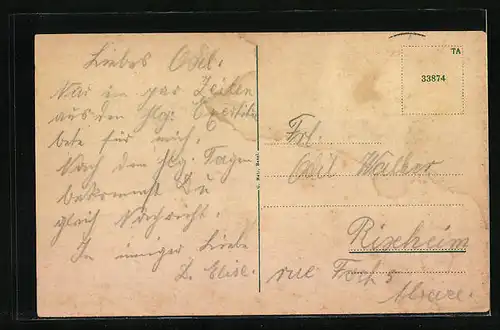 Liebes Odil.
Nur ein par Zeilen
aus den Hlg. Exerzitien
bete für mich.
Nach den Hlg. Tagen
bekommst Du
gleich Nachricht.
In inniger Liebe
L. Elise.
TA
33874
Frl.
Odil Walter
Rixheim
rue
Alsace.